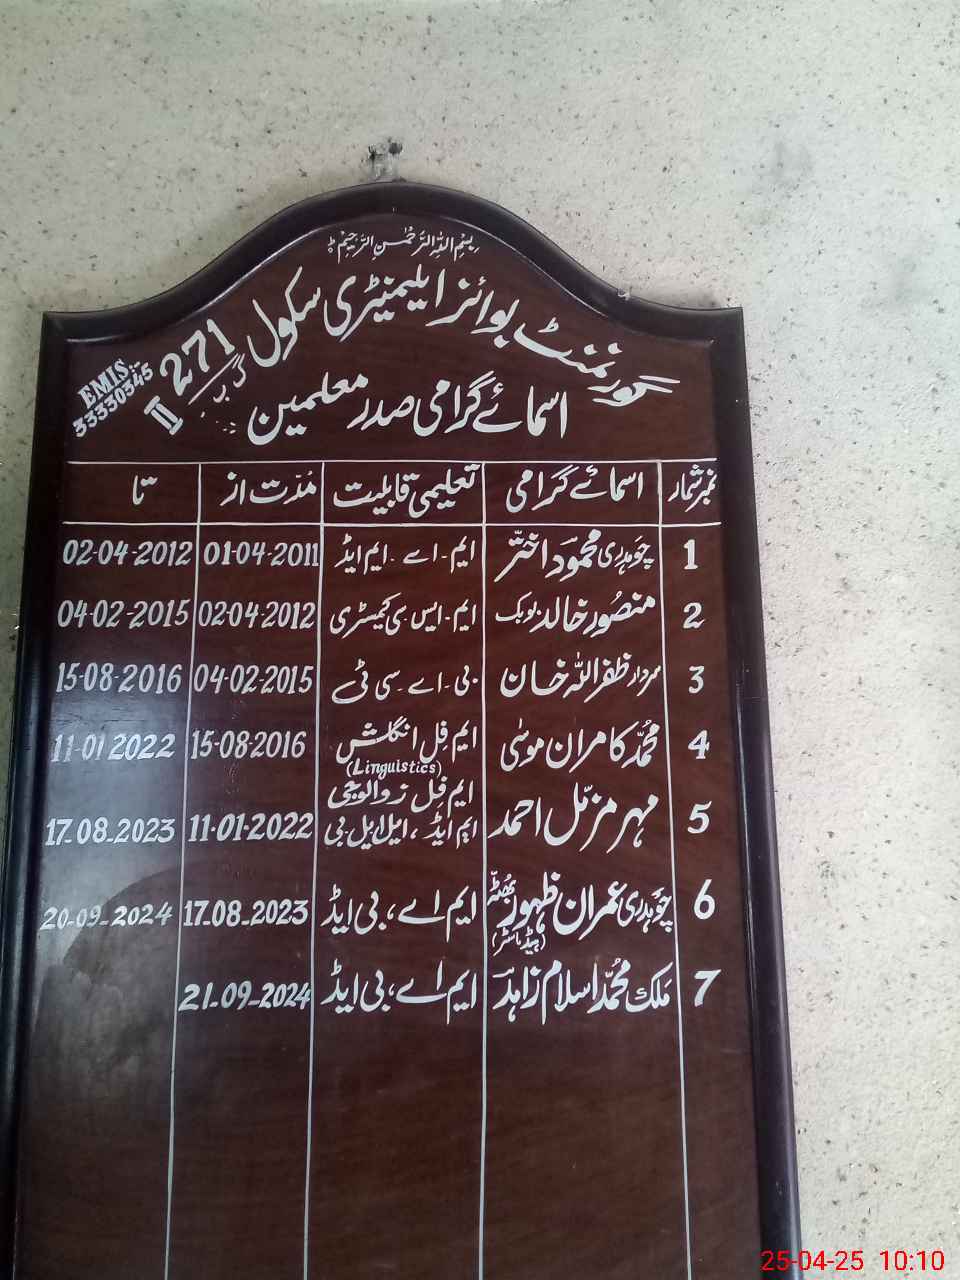 بِسْمِ اللہِ الرَّحْمٰنِ الرَّحِيْمِ
گورنمنٹ بوائز ایلیمنٹری سکول 271 گ ب II
EMIS:-
33330345
اسمائے گرامی صدر معلمین
نمبر شمار اسمائے گرامی تعلیمی قابلیت مُدّت از تا
1 چوہدری محمود اختر ایم-اے-ایم ایڈ 01-04-2011 02-04-2012
2 منصُور خالد ایم-ایس-سی کیمسٹری 02-04-2012 04-02-2015
3 سردار ظفر اللہ خان بی-اے-سی ٹی 04-02-2015 15-08-2016
4 محمّد کامران موسٰی ایم فِل انگلش (Linguistics) 15-08-2016 11-01 2022
5 مہر مزمّل احمد ایم فِل زوالوجی
ایم ایڈ، ایل ایل بی 11-01-2022 17-08-2023
6 چوہدری عمران ظہور بھٹہ (ہیڈماسٹر) ایم اے، بی ایڈ 17-08-2023 20-09-2024
7 ملک محمّد اسلام زاہد ایم اے، بی ایڈ 21-09-2024
25-04-25 10:10